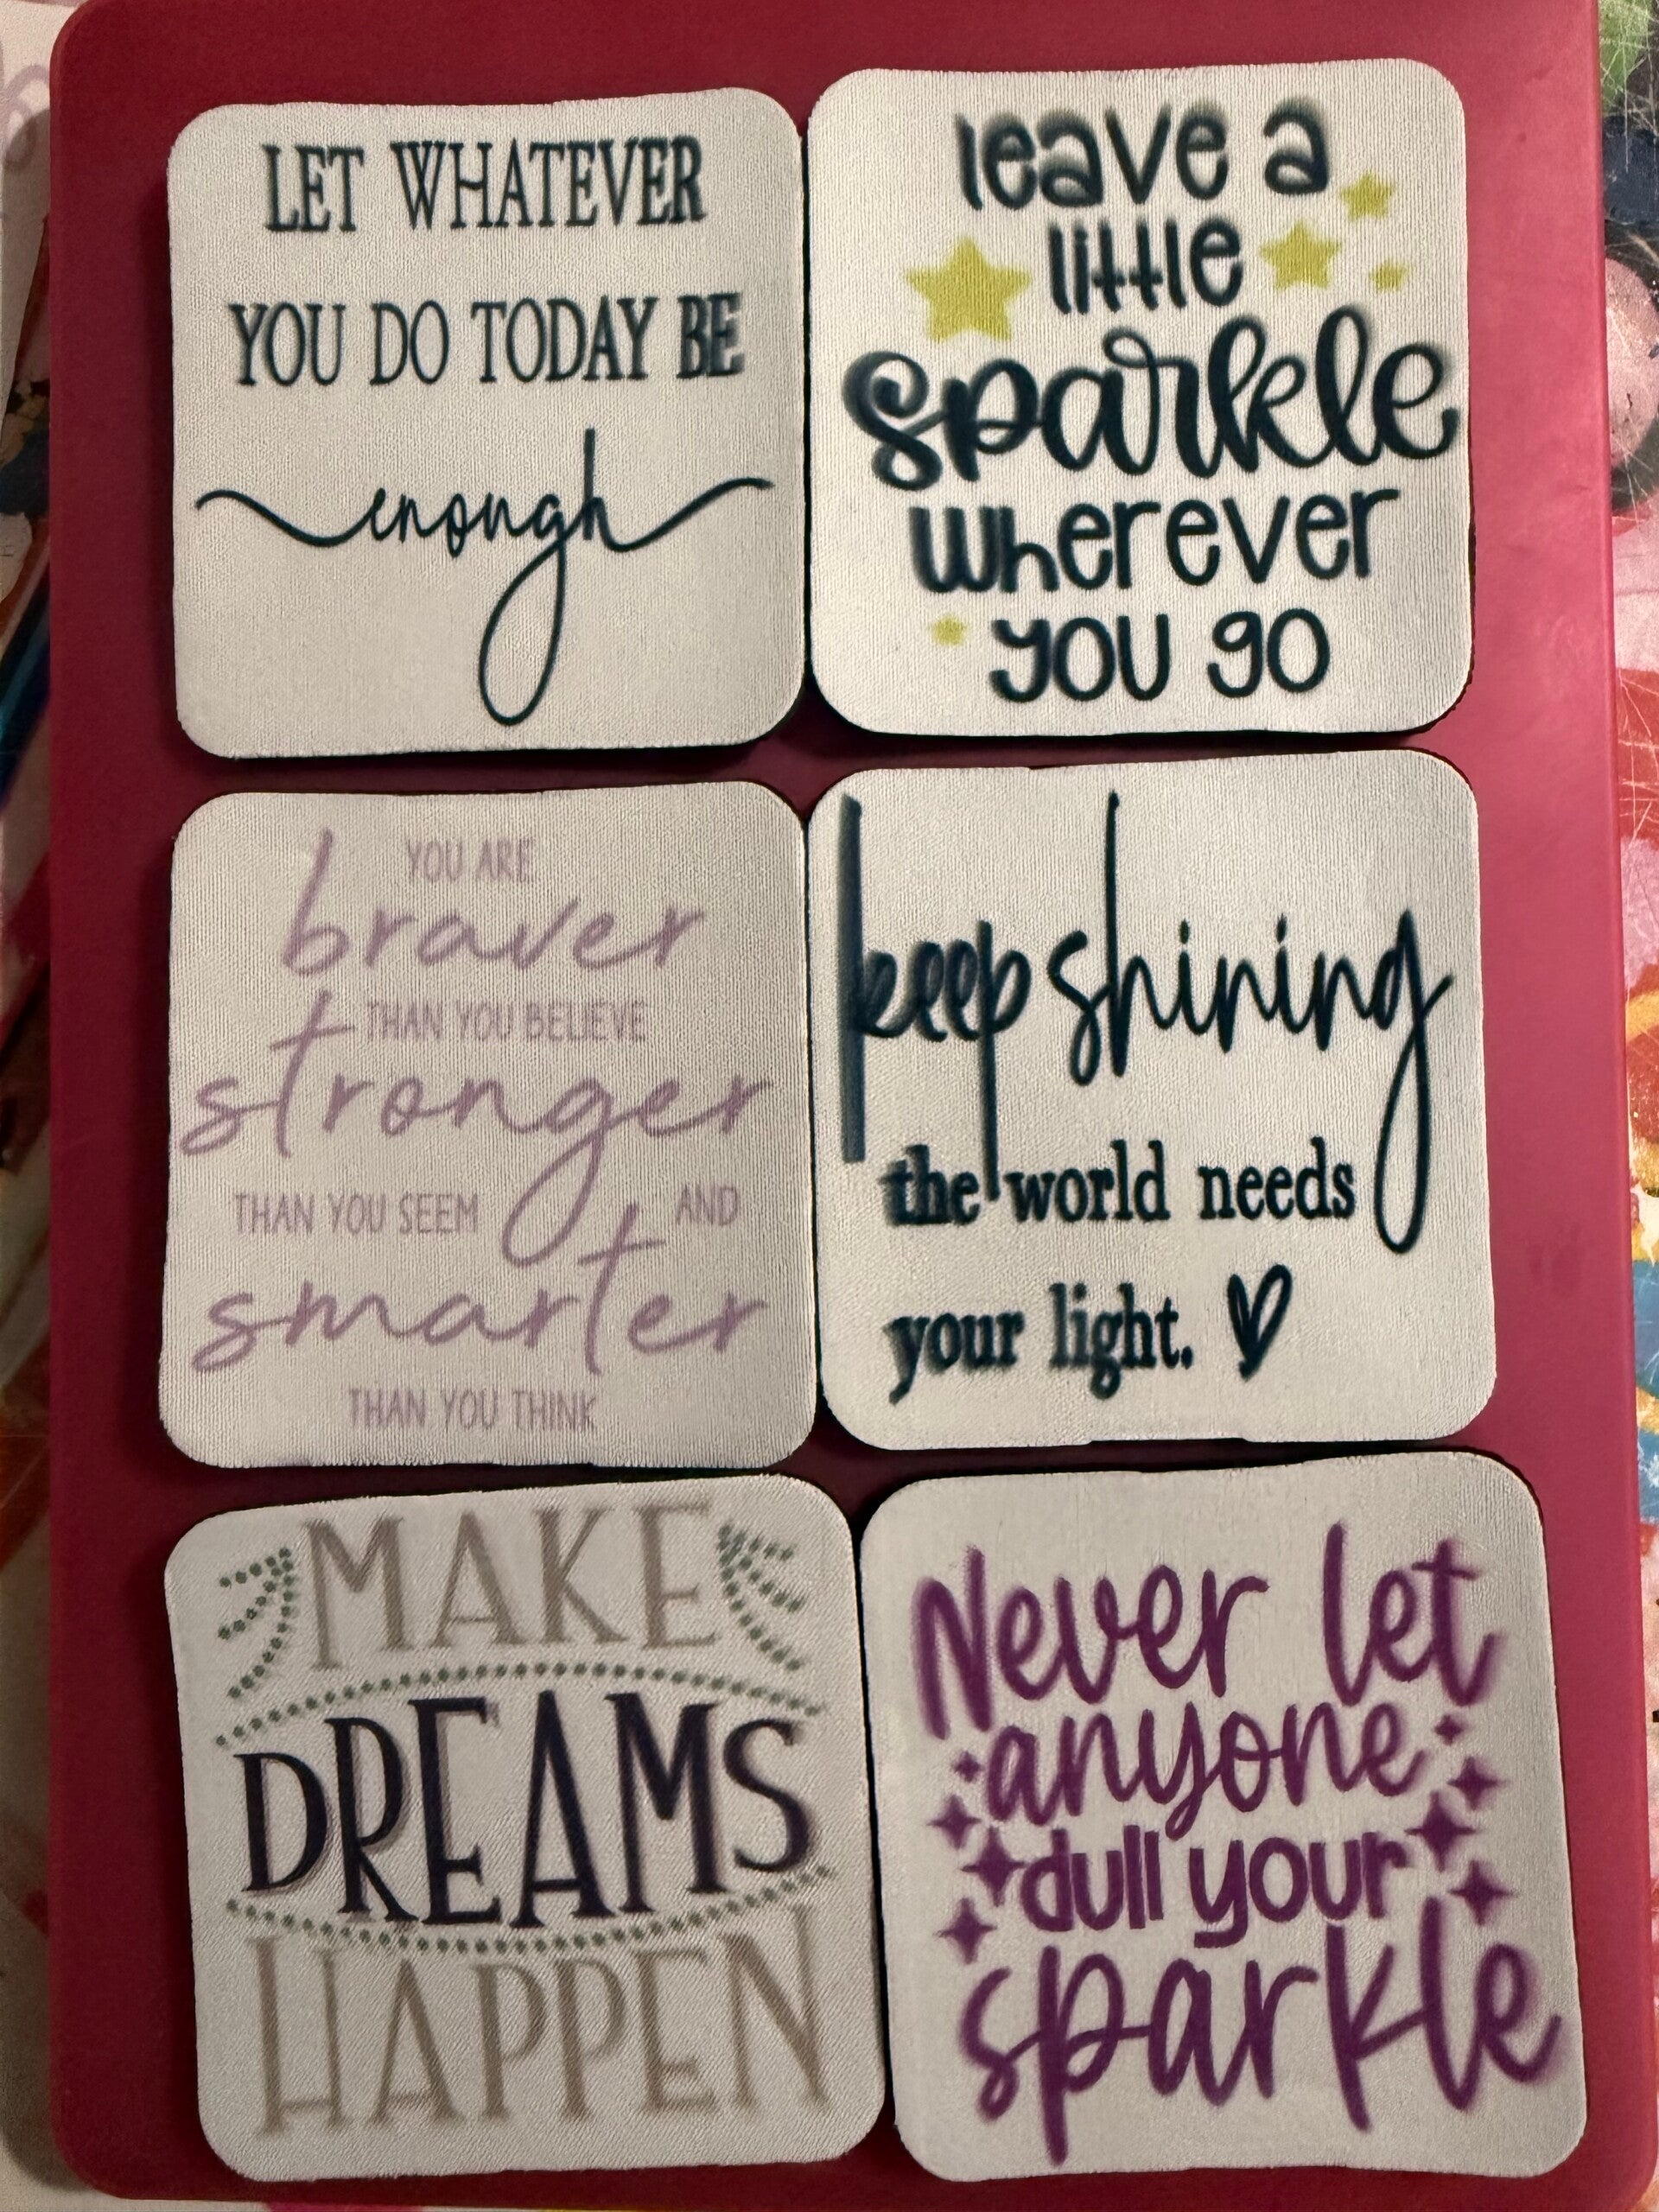 LET WHATEVER
YOU DO TODAY BE
enough
leave a
little
sparkle
wherever
you go
YOU ARE
braver
THAN YOU BELIEVE
stronger
THAN YOU SEEM AND
smarter
THAN YOU THINK
keep shining
the world needs
your light.
MAKE
DREAMS
HAPPEN
Never let
anyone
dull your
sparkle